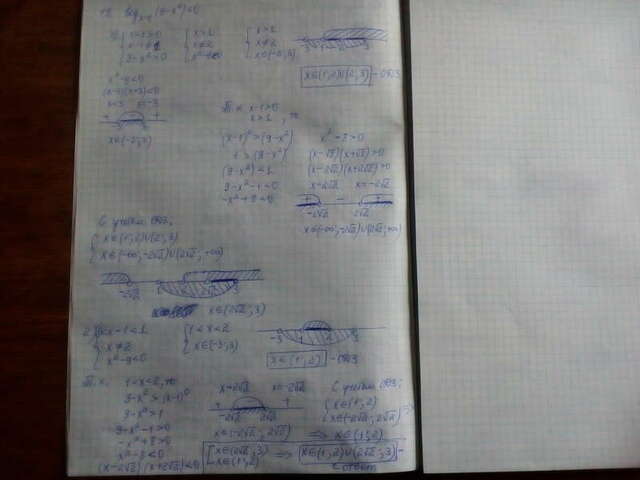 (9-x²)<0
{ x-1>0
x-1≠1
9-x²>0
{ x>1
x≠2
x²-9<0
{ x>1
x≠2
x∈(-3;3)
x²-9<0
(x-3)(x+3)<0
x=3 x=-3
+ - +
x∈(-3;3)
x∈(1;2)∪(2;3) - ОДЗ
x-1>0
x>1
(x-1)⁰>(9-x²)
1>(9-x²)
(9-x²)<1
9-x²-1<0
-x²+8<0
x²-8>0
(x-2√2)(x+2√2)>0
x=2√2 x=-2√2
+ - +
-2√2 2√2
x∈(-∞;-2√2)∪(2√2;+∞)
С учётом ОДЗ:
{ x∈(1;2)∪(2;3)
x∈(-∞;-2√2)∪(2√2;+∞)
-2√2
x∈(2√2;3)
x-1<1
x≠2
x²-9<0
{ 1<x<2
x∈(-3;3)
-3 1 2 3
x∈(1;2) - ОДЗ
Т.к. 1<x<2, то
9-x²>(x-1)⁰
9-x²>1
9-x²-1>0
-x²+8>0
x²-8<0
(x-2√2)(x+2√2)<0
x=2√2 x=-2√2
+ - +
-2√2 2√2
x∈(-2√2;2√2)
С учётом ОДЗ:
{ x∈(1;2)
x∈(-2√2;2√2) =>
=> x∈(1;2)
[ x∈(2√2;3)
x∈(1;2)
=> x∈(1;2)∪(2√2;3) -
ответ